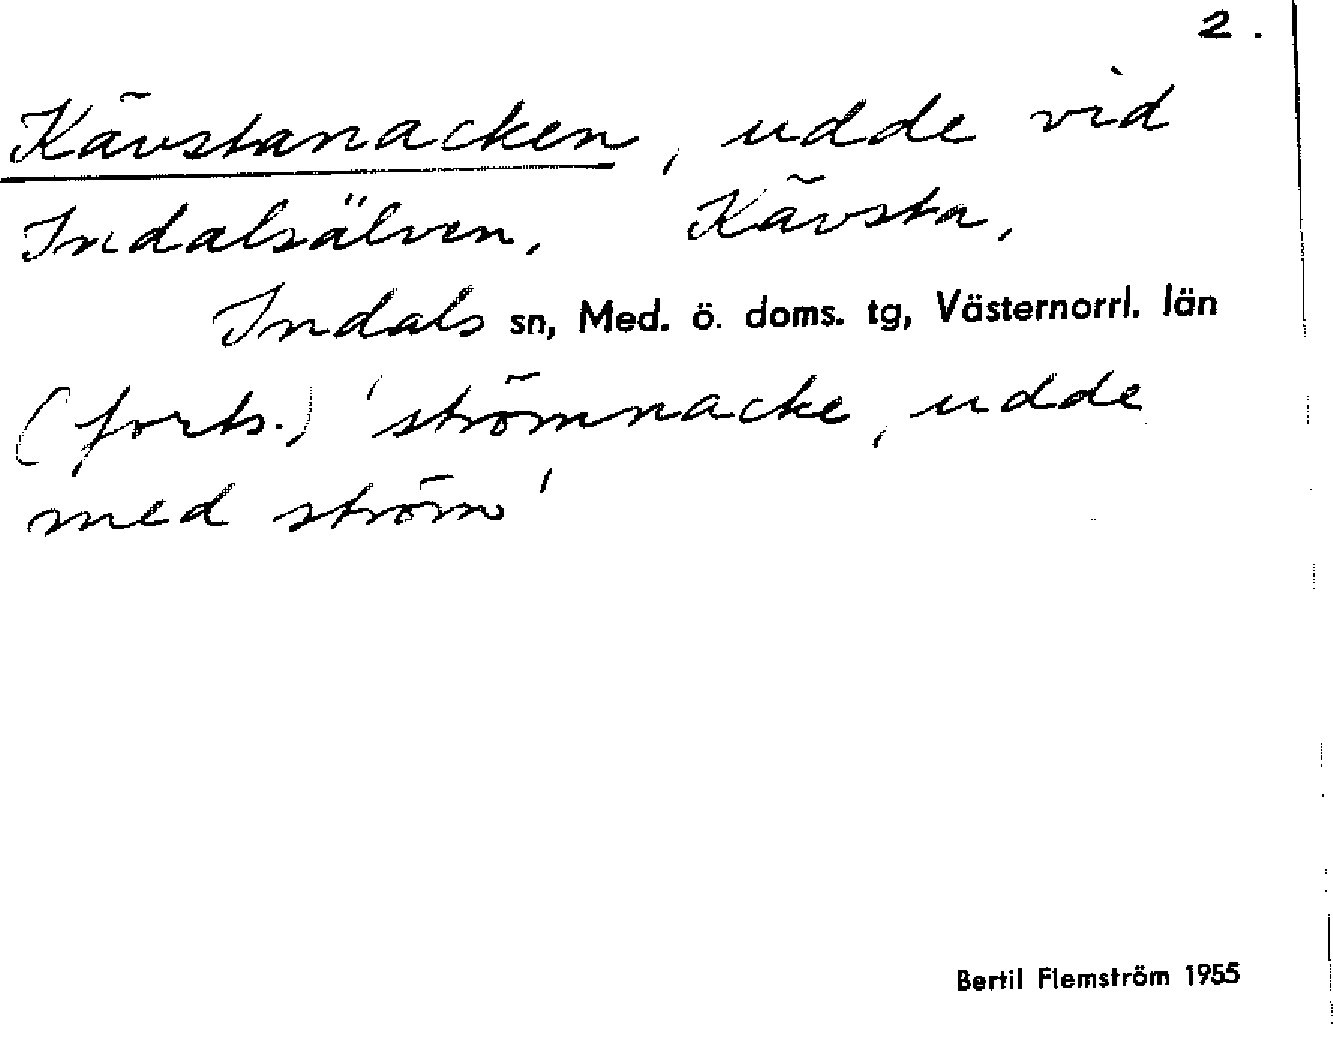 2.
Kävstanacken, udde vid
Indalsälven, Kävsta,
Indals sn, Med. ö. doms. tg, Västernorrl. län
(forts.) 'strömnacke, udde
med ström'
Bertil Flemström 1955